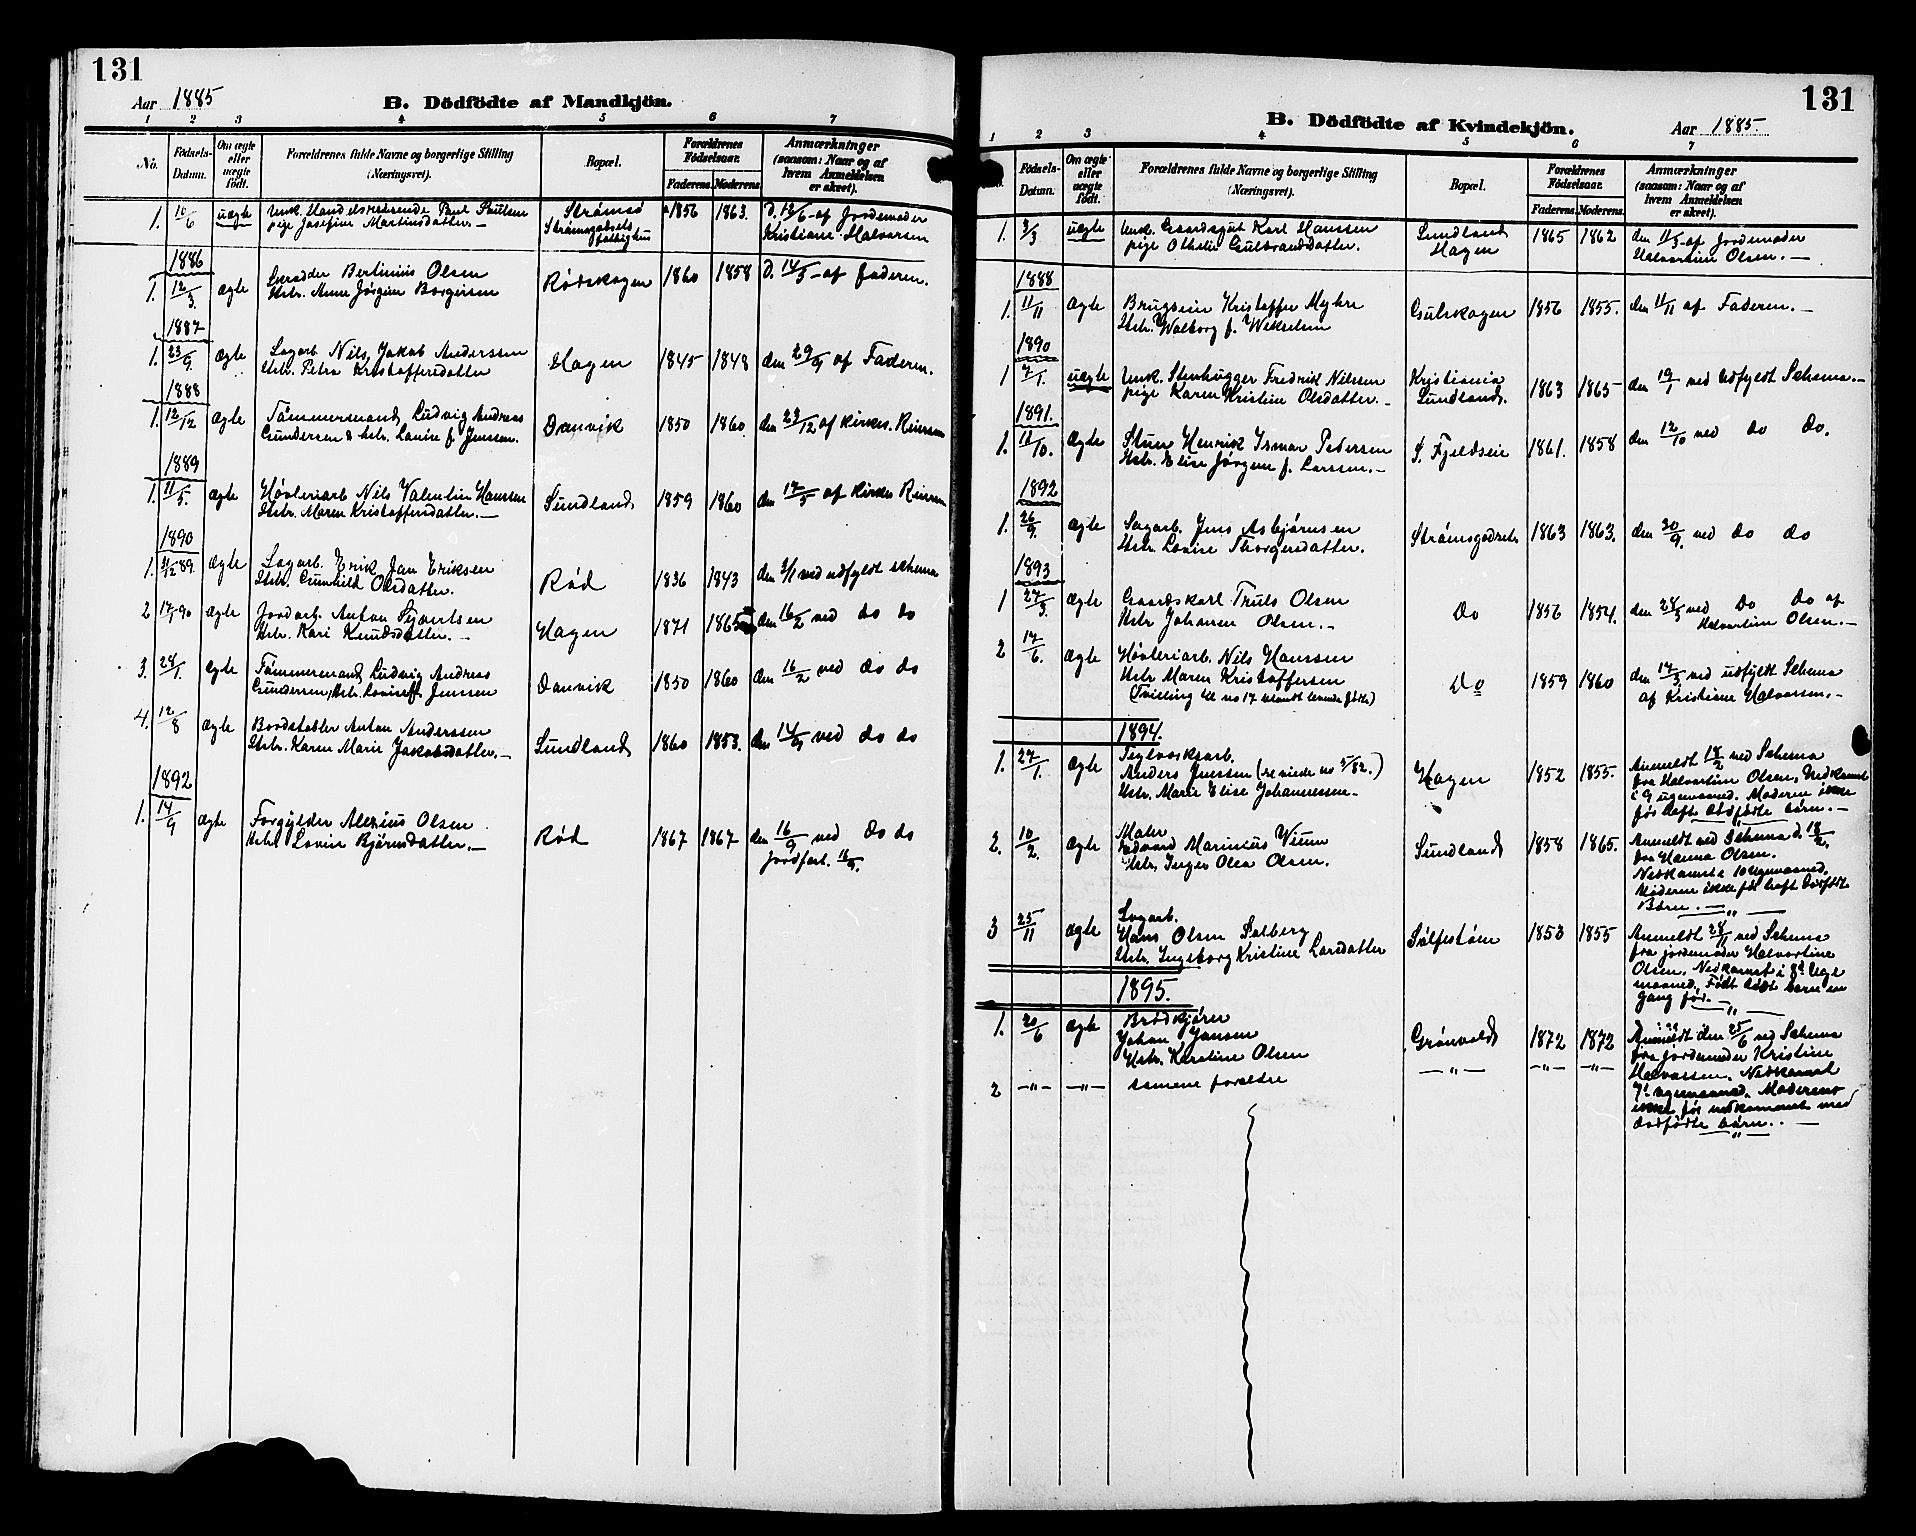 131
Aar 1885
B. Dödfödte af Mandkjön.
1 2 3 4 5 6 7
No. Födsels-Datum. Om ægte eller uægte födt. Forældrenes fulde Navne og borgerlige Stilling (Næringsvei). Bopæl. Forældrenes Födselsaar. Faderens. Moderens. Anmærkninger (saasom: Naar og af hvem Anmeldelsen er skeet).
1. 10/6 uægte Unk. Handelsreisende Paul Paulsen Strømsø 1856 1863. D. 12/6 af Jordemoder
pige Josefine Martinsdatter. — Strømsgodsets fattighus Kristiane Halvorsen
1886
1. 12/3. ægte Skrædder Bertinius Olsen Rødskogen 1860 1858 D. 14/3 - af faderen.
Hstr. Anne Jørgine Borgersen
1887
1. 23/9. ægte Sagarb. Nils Jakob Anderssen Hagen 1845 1848 den 29/9 af Faderen.
Hstr. Petra Kristoffersdatter
1888
1. 12/12 ægte Tømmermand Ludvig Andreas Danvik 1850 1860 den 23/12 af kirkes. Reiersen
Gundersen & hstr. Lovise f. Jenssen.
1889
1. 11/5. ægte Høvleriarb Nils Valentin Hanssen Sundland 1859 1860 den 17/5 af kirkes Reiersen
Hstr. Maren Kristoffersdatter. —
1890
1. 31/12 89. ægte Sagarb. Erik Jan Eriksen Rød 1836 1843 den 3/1 ved udfyldt schema
Hstr. Gunhild Olsdatter.
2 17/1 90 ægte Jordarb. Anton Syvertsen Hagen 1871 1865 den 16/2 ved do do
Hstr. Kari Knudsdatter. —
3. 24/1. ægte Tømmermand Ludvig Andreas Danvik 1850 1860 den 16/2 ved do do
Gundersen, Hstr. Lovise f. Jenssen
4. 12/8 ægte Bordstabler Anton Anderssen Sundland 1860 1853. den 14/9 ved do do
Hstr. Karen Marie Jakobsdatter. —
1892
1. 14/9 ægte Forgylder Alexius Olsen Rød 1867 1867 den 16/9 ved do do
Hstr. Lovise Bjørnsdatter. — Jordfæst. 18/9.
131
B. Dödfödte af Kvindekjön.
Aar 1885.
1 2 3 4 5 6 7
No. Födsels-Datum. Om ægte eller uægte födt. Forældrenes fulde Navne og borgerlige Stilling (Næringsvei). Bopæl. Forældrenes Födselsaar. Faderens. Moderens. Anmærkninger (saasom: Naar og af hvem Anmeldelsen er skeet).
1. 3/3 uægte Unk. Gaardsgut Karl Hanssen Sundland 1865 1862 den 11/3 - af Jordemoder
pige Othelie Gulbrandsdatter. Hagen Halvartine Olsen. —
1888
1. 11/11 ægte Brugseier Kristoffer Myhre Gulskogen 1856 1855. den 11/11 af Faderen. —
Hstr. Walborg f. Wekselsen
1890
1 7/1. uægte Unk. Stenhugger Fredrik Nilssen Kristiania 1863 1865 den 19/1 ved udfyldt Schema. —
pige Karen Kristine Olsdatter. — Sundland.
1891.
1. 11/10. ægte Stuer Henrik Ismar Pedersen S. Fjeldseie 1861. 1858 den 12/10 ved do do.
Hstr. Elise Jørgine f. Larssen. —
1892
1. 26/9. ægte Sagarb. Jens Asbjørnsen Strømsgodset 1863 1863. den 30/9. ved do do
Hstr. Lovise Thorgersdatter.
1893
1 27/3. ægte Gaardskarl Truls Olsen Do 1856 1854. den 28/3 ved Do do af
Hstr Johanne Olsen. — Halvartine Olsen. —
2 17/6. ægte Høvleriarb. Nils Hanssen Do 1859 1860 den 14/3. ved udfyldt Schema
Hstr Maren Kristoffersen af Kristiane Halvorsen. —
(Tvilling til no 17 blandt levende fødte)
1894.
1. 27/1. ægte Teglværksarb. Hagen 1852 1855. Anmeldt 18/2 ved Schema
Anders Jenssen (se viede no 5/82.) fra Halvartine Olsen, Nedkommet
Hstr. Marie Elise Johannessen — i 9 ugemaaned. Moderen ikke
før haft dødfødte børn. —
2. 10/2. ægte Maler Sundland 1858 1865. Anmeldt ved Schema d. 18/2.
Edvard Marinius Wiun fra Hanna Olsen.
Hstr. Inger Olea Olsen. Nedkomst i 10 Ugemaaned.
Moderen ikke før haft dødfødt
Børn. —
3 25/11 ægte Sagarb. Sølfestøen 1853 1855 Anmeldt 28/11 ved Schema
Hans Olsen Solberg fra jordemoder Halvartine
Hstr. Ingeborg Kristine Larsdatter Olsen, Nedkomst i 8d Uge
maaned. Født dødt barn en
gang før. —
1895.
1. 20/6 ægte Brødkjører Grønvold 1872 1872 Anmeldt den 25/6 ved Schema
Johan Jansen fra jordemoder Kristine
Hstr. Karoline Olsen Halvorsen. Nedkommet
2 — " — — " — samme forældre — " — — " — — " — 7de ugemaaned. Moderen
ikke før nedkommet med
dødfødte børn. —